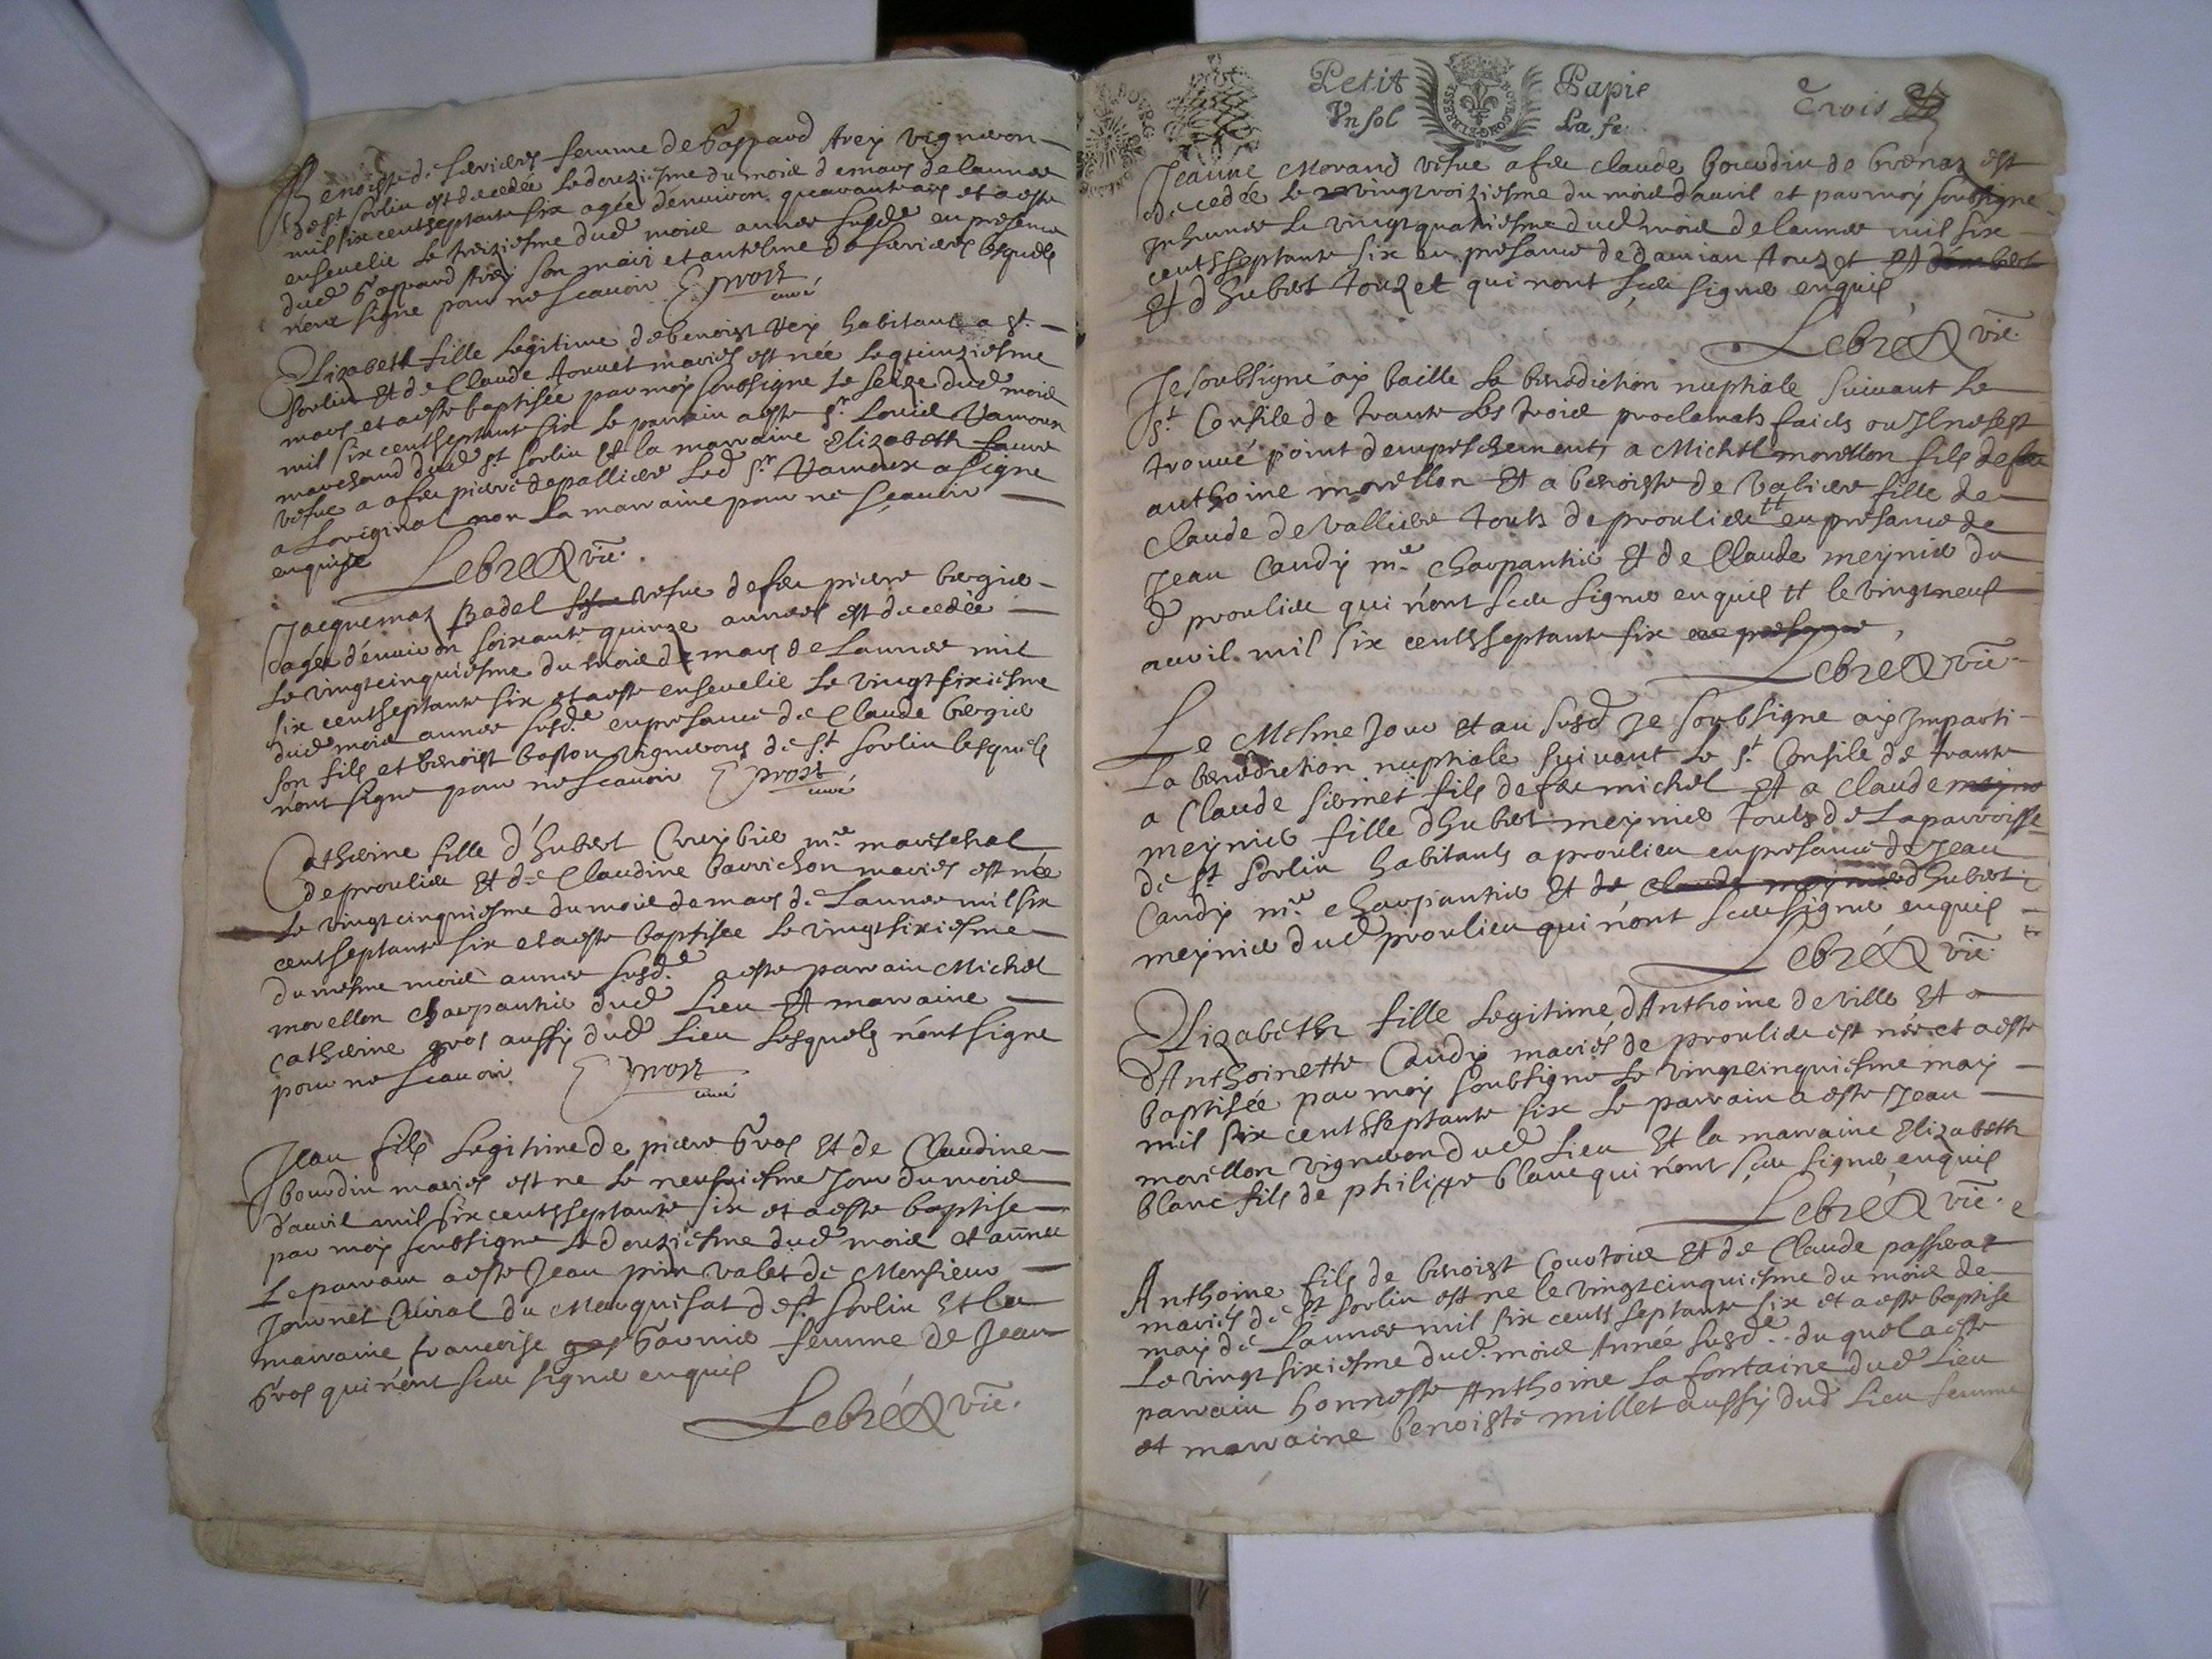 Benoiste de Serrieres femme de Gaspard Arey vigneron
de St Sorlin est decedée le douziesme du mois de mars de lannee
mil six cent septante six agée denuiron quarante ans et a este
enseuelie le treiziesme dud mois annee susde en presence
dud Gaspard Arey son mari et antelme de Serrieres lesquels
n'ont signe pour ne scauoir E prost
curé
Elizabeth fille legitime de benoist Veix habitant a St
Sorlin Et de Claude mariés est née le quinziesme
mars et a este baptisée par moy soubsigne le seize dud mois
mil six cent septante six le parrain a este Sr Louis Vamoux
marchand dud St Sorlin Et la marraine Elizabeth faure
vefue a feu pierre depallier led Sr Vamoux a signe
a Loriginal non la marraine pour ne sçauoir
enquise Lebré vic.
Jacquemaz Badel vefue de feu pierre bergier
agée d'enuiron soixante quinze annees est decedée
le vingt cinquiesme du mois de mars de Lannee mil
six cent septante six et a este enseuelie le vingt sixiesme
dud mois annee susde en presance de Claude bergier
son fils et benoist baston vignerons de St Sorlin lesquels
n'ont signe pour ne scauoir E prost
curé
Catherine fille d'hubert Cruybié me mareschal
de proulieu Et de Claudine barrichon mariés est née
le vingt cinquiesme du mois de mars de Lannee mil six
cent septante six et a este baptisée le vingt sixiesme
du mesme mois annee susde a este parrain Michel
morellon charpantier dud Lieu Et marraine
catherine gros aussy dud Lieu lesquels n'ont signe
pour ne scauoir E prost
curé
Jean fils Legitime de pierre Gros Et de Claudine
bourdin mariés est ne le neufuiesme Jour du mois
d'auril mil six cents septante six et a este baptise
par moy soubsigne le douziesme dud mois et année
Le parrain a este Jean prin valet de Monsieur
Journet Chiral du Marquisat de St Sorlin Et la
marraine francoise Garnier femme de Jean
Gros qui n'ont sceu signer enquis
Lebré vic.
Petit Papie
Vn sol La fe.
Trois
Jeanne Morand vefue a feu claude bourdin de brenaz est
decedée le vingtroiziesme du mois d'auril et par moy soubsigne
Inhumee le vingt quatriesme dud mois de lannee mil six
cents septante six en presance de damian touzet
Et d'hubert touzet qui n'ont sceu signer enquis
Lebré vic.
Je soubsigné ay baille la benediction nuptiale suiuant le
St Consile de trante les trois proclamats faicts ou Il ne sest
trouué point dempeschement, a Michel morellon fils de feu
anthoine morellon Et a benoiste de Valiere fille de
Claude de valliere touts de proulieu tt en presance de
Jean Candy me charpantier Et de Claude meynier du
d proulieu qui n'ont sceu signer enquis tt le vingt neuf
auril mil six cents septante six
Lebré vic.
Le Mesme Jour et an susd Je soubsigne ay Imparti
la benediction nuptiale suiuant le St Consile de trante
a Claude fils de feu michel Et a Claude
meynier fille d'hubert meynier touts de la parroisse
de St Sorlin habitants a proulieu en presance de Jean
Candy me charpantier Et de claude meynier d'hubert
meynier dud proulieu qui n'ont sceu signer enquis
Lebré vic.
Elizabeth fille Legitime d'Anthoine de ville Et
d'Anthoinette Candy mariés de proulieu est née et a este
baptisée par moy soubsigne le vingt cinquiesme may
mil six cent septante six le parrain a este Jean
morellon vigneron dud Lieu Et la marraine Elizabeth
blanc fils de philippe blanc qui n'ont sceu signer enquis
Lebré vic.
Anthoine fils de benoist Couvtois Et de Claude passerat
mariés de St Sorlin est ne le vingt cinquiesme du mois de
may de Lannee mil six cents septante six et a este baptise
Le vingt sixiesme dud. mois Année susde. du quel a este
parrain honneste Anthoine La fontaine dud Lieu
et marraine benoiste millet aussy dud Lieu femme